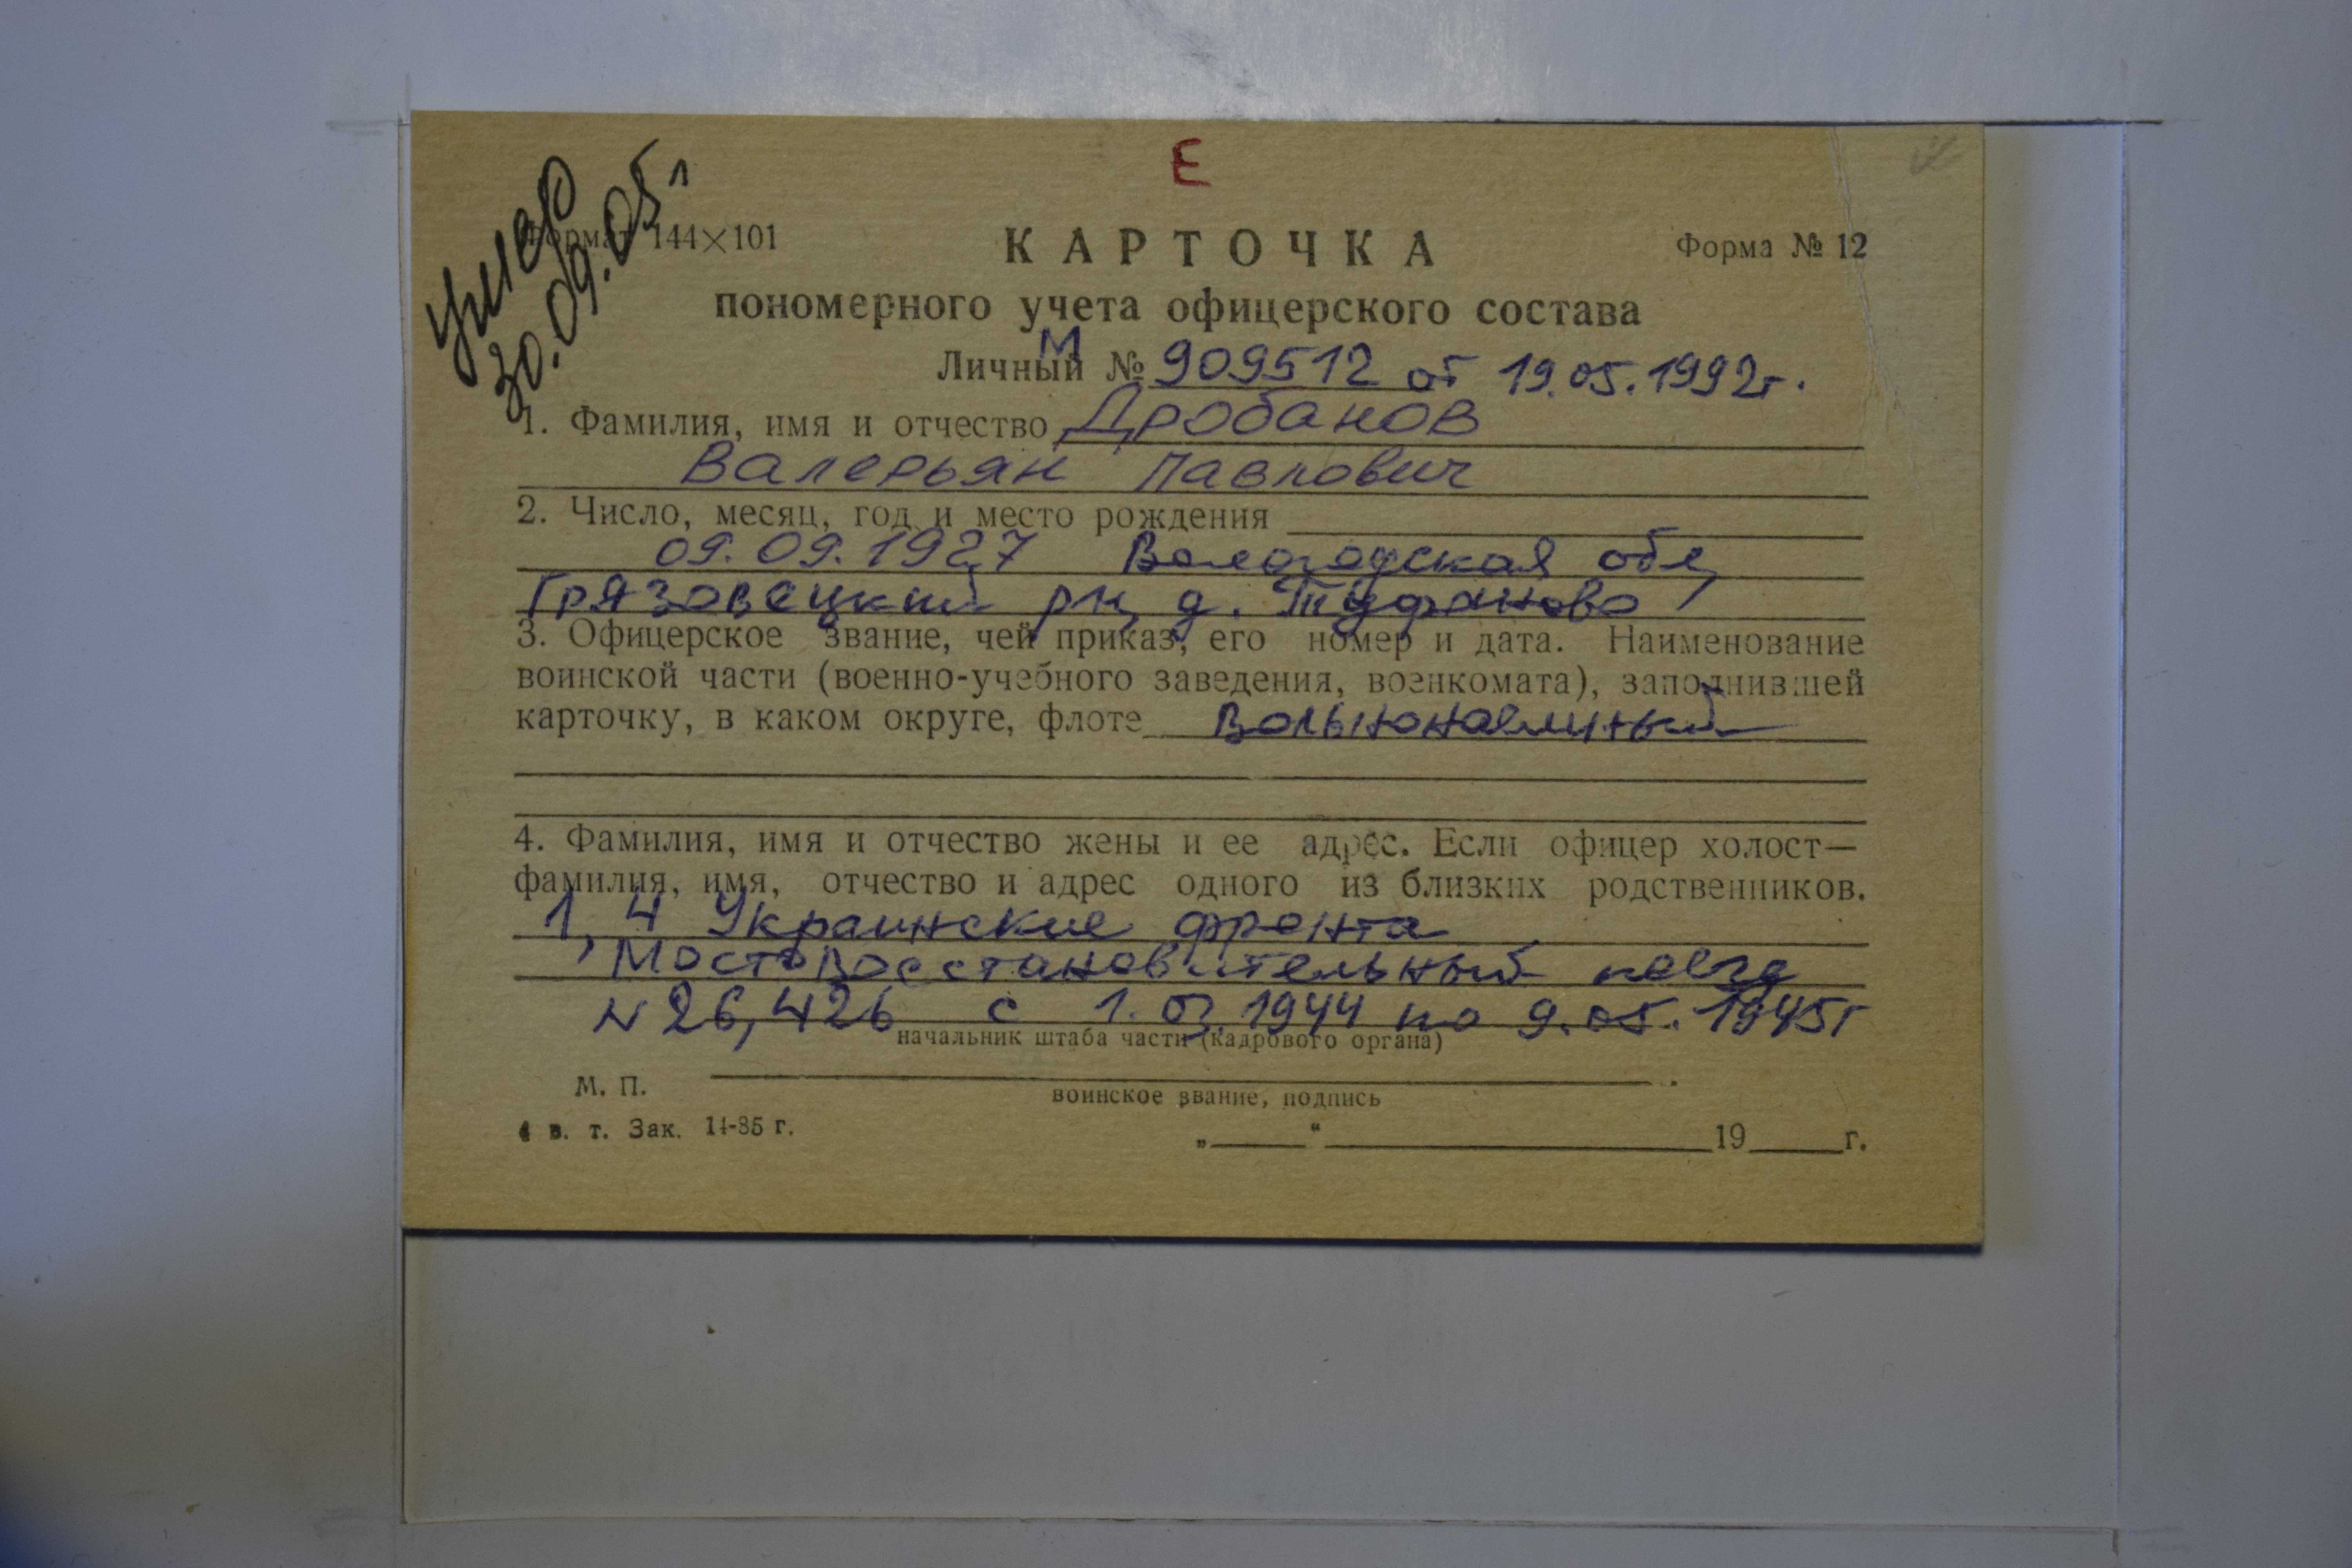 Е
умер
30.09.05г
Формат 144×101
КАРТОЧКА
Форма № 12
пономерного учета офицерского состава
М
Личный № 909512 от 19.05.1992г.
1. Фамилия, имя и отчество Дробанов
Валерьян Павлович
2. Число, месяц, год и место рождения
09.09.1927 Вологодская обл,
Грязовецкий рн, д. Туфаново
3. Офицерское звание, чей приказ, его номер и дата. Наименование
воинской части (военно-учебного заведения, военкомата), заполнившей
карточку, в каком округе, флоте Вольнонаемный
4. Фамилия, имя и отчество жены и ее адрес. Если офицер холост—
фамилия, имя, отчество и адрес одного из близких родственников.
1, 4 Украинские фронта
Мостовосстановительный поезд
N 26, 426 с 1.03.1944 по 9.05.1945г
начальник штаба части (кадрового органа)
М. П.
воинское звание, подпись
4 в. т. Зак. 14-85 г.
„ “ 19 г.